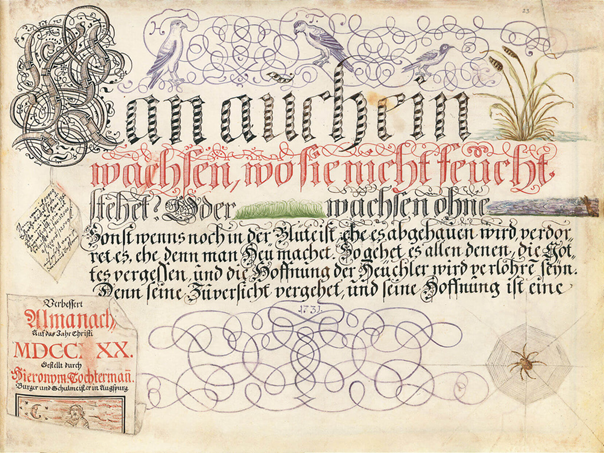 Kan auch ein
wachsen, wo sie nicht feucht
stehet? Oder wachsen ohne
Sonst wenns noch in der Blut ist, ehe es abgehauen wird, verdor,
ret es, ehe denn man Heu machet. So gehet es allen denen, die Got,
tes vergessen, und die Hoffnung der Heuchler wird verlohrē seyn.
Denn seine Zuversicht vergehet, und seine Hoffnung ist eine
1731.
Verbessert
Almanach,
Auf das Jahr Christi.
MDCC XX.
Gestellt durch
Hieronym: Tochtermañ.
Burger und Schulmeister in Augspurg.